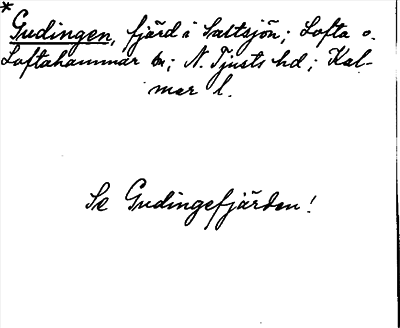 *
Gudingen, fjärd i Saltsjön; Lofta o.
Loftahammar sn; N. Tjusts hd; Kal-
mar l.
Se Gudingefjärden!